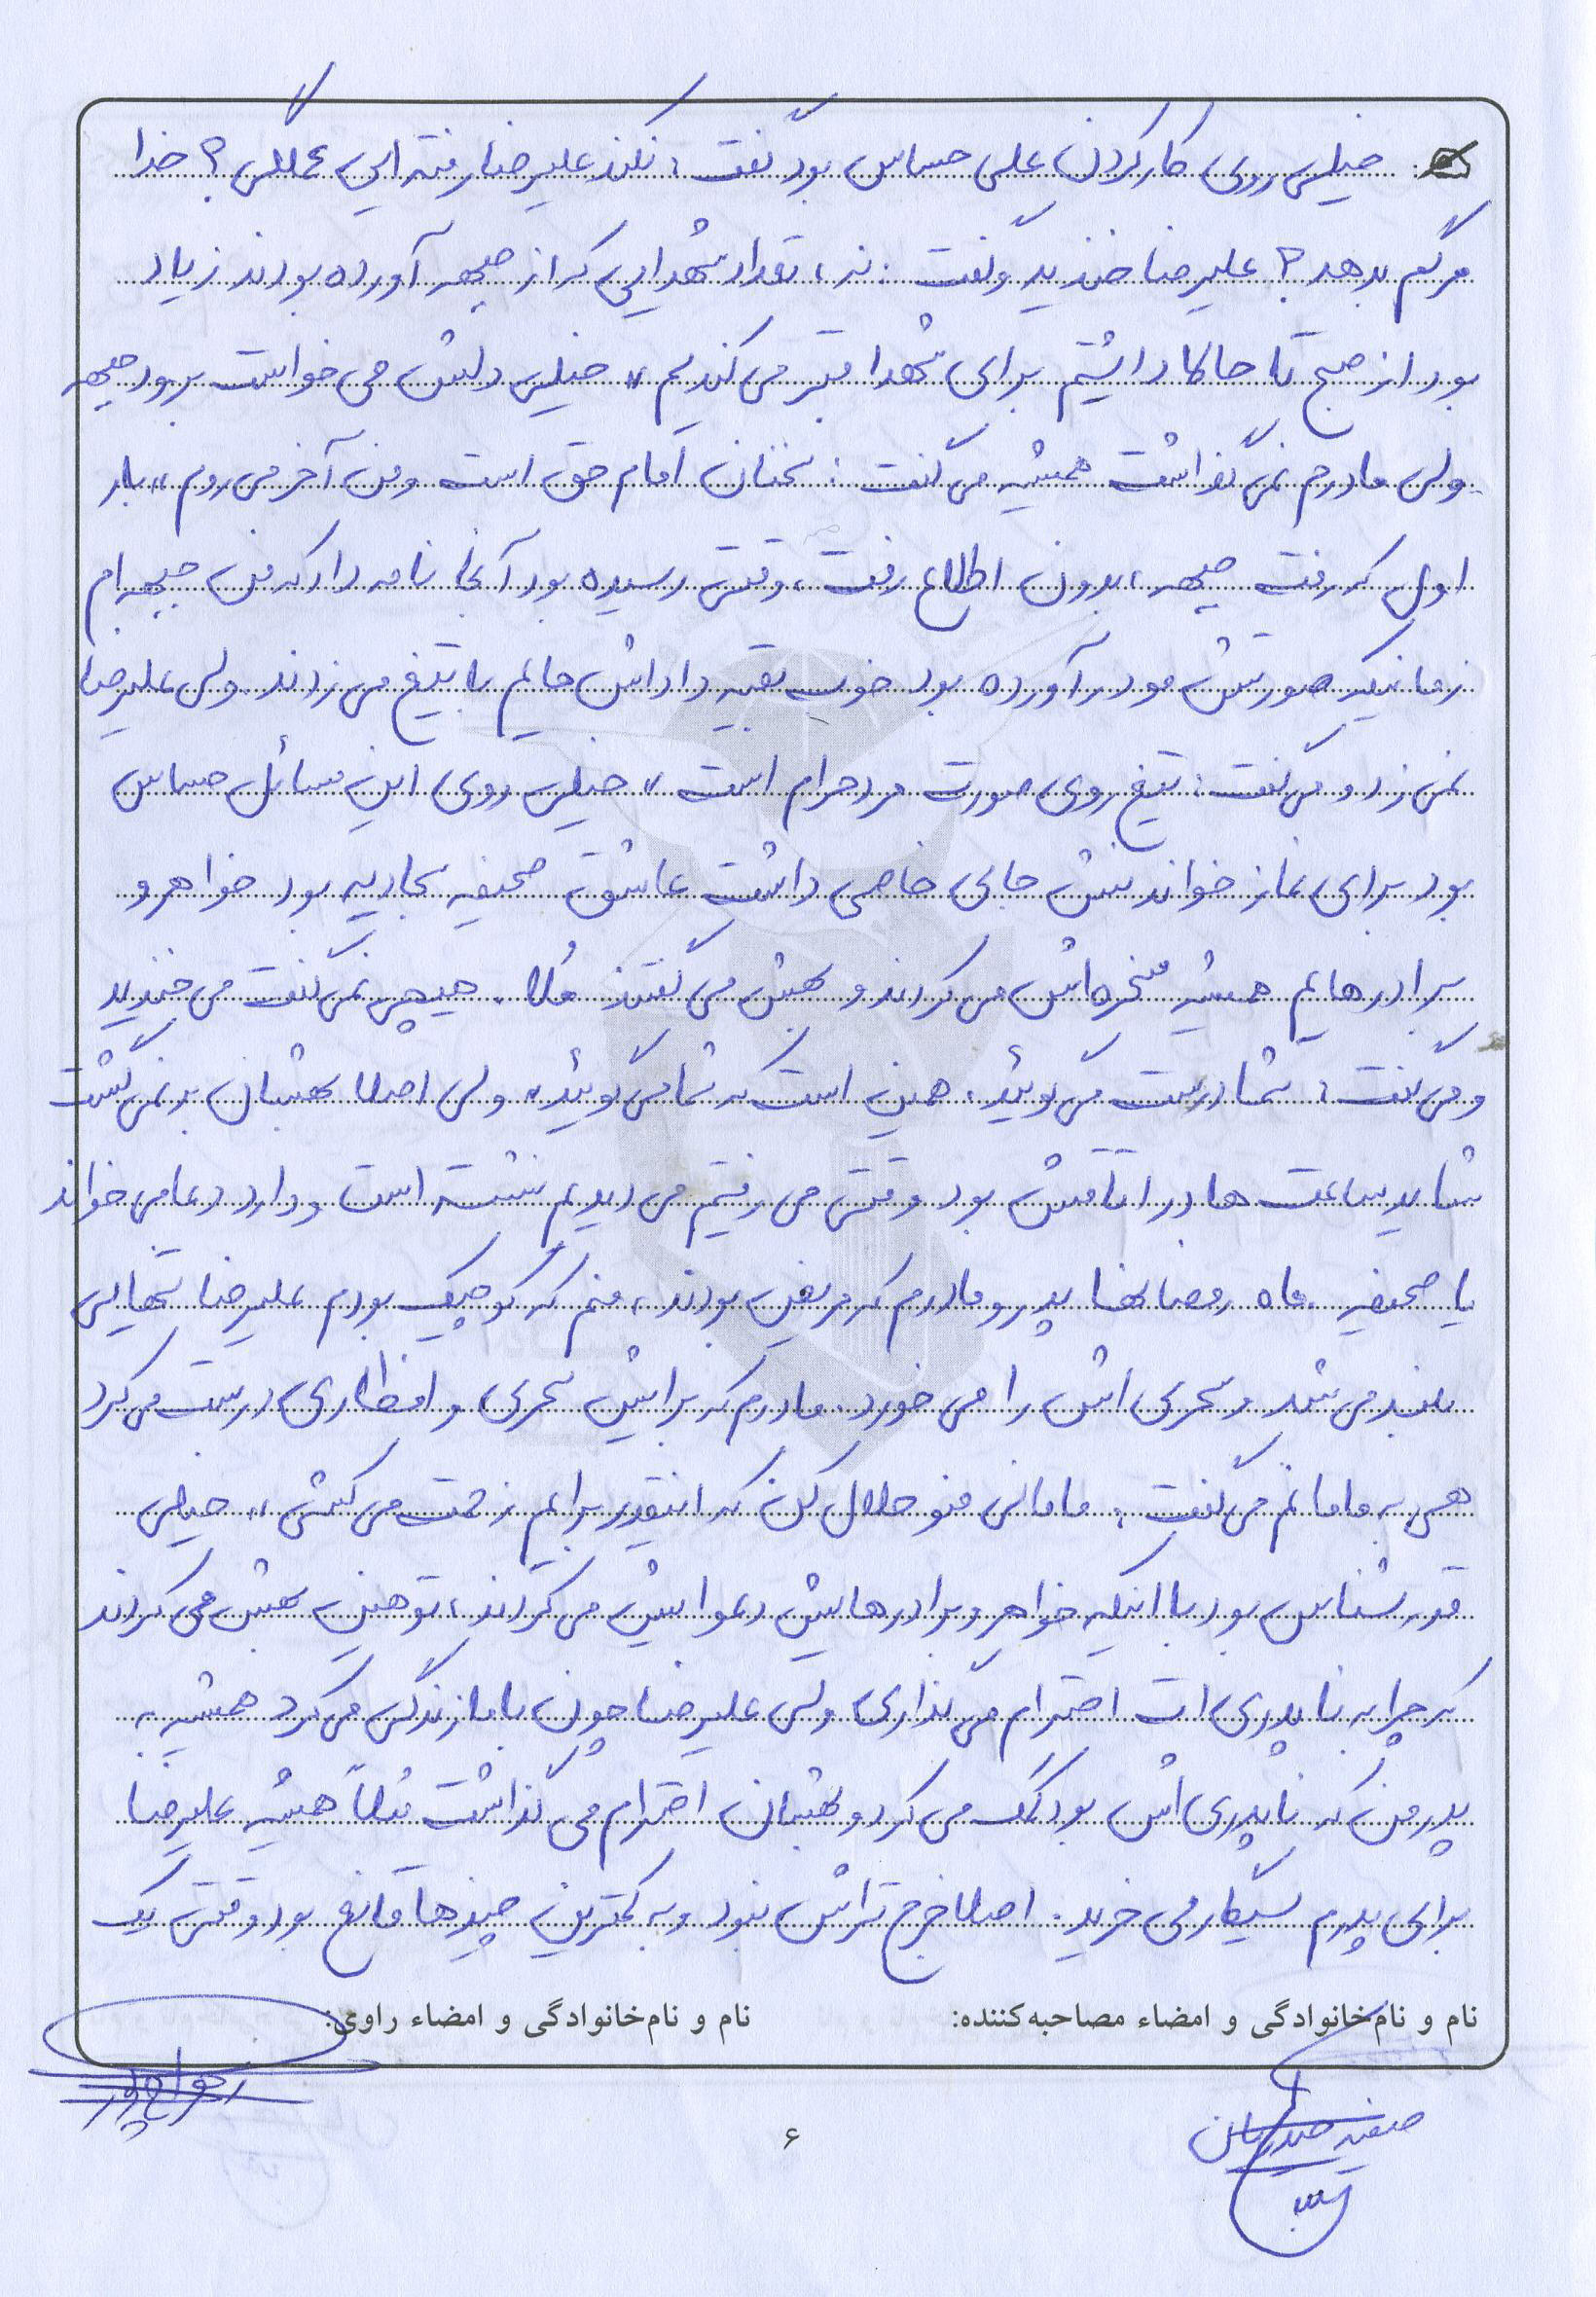 خیلی روی کار کردن علی حساس بود گفت: نکند علیرضا رفته ای عملگی؟ خدا
مرگم بدهد؟ علیرضا خندید و گفت: نه، تعداد شهدایی که از جبهه آورده بودند زیاد
بود از صبح تا حالا داشتیم برای شهدا قبر می کندیم" خیلی دلش می خواست برود جبهه
ولی مادرم نمی گذاشت همیشه می گفت: سخنان امام حق است ومن آخر می روم" بار
اول که رفت جبهه، بدون اطلاع رفت، وقتی رسیده بود آنجا نامه داد که من جبهه ام
زمانیکه صورتش مو در آورده بود خوب بقیه داداش هایم با تیغ می زدند. ولی علیرضا
نمی زد و می گفت: تیغ روی صورت مرد حرام است" خیلی روی این مسائل حساس
بود برای نماز خواندنش جای خاصی داشت عاشق صحیفه سجادیه بود خواهر و
برادرهایم همیشه مسخره اش می کردند و بهش می گفتند مُلا. هیچی نمی گفت می خندید
و می گفت: شما درست می گوئید، همین است که شما می گوئید" ولی اصلا بهشان بر نمی گشت
شاید ساعت ها در اتاقش بود وقتی می رفتیم می دیدیم نشسته است و دارد دعا می خواند
یا صحیفه. ماه رمضانها پدر و مادرم که مریض بودند، منم که کوچیک بودم علیرضا تنهایی
بلند می شد و سحری اش را می خورد. مادرم که برایش سحری و افطاری درست می کرد
هی به مامانم می گفت: مامانی منو حلال کن که اینقدر برایم زحمت می کشی"، خیلی
قدرشناس بود با اینکه خواهر و برادرهایش دعوایش می کردند، توهین بهش می کردند
که چرا به ناپدری ات احترام می گذاری ولی علیرضا چون با ما زندگی می کرد همیشه به
پدر من که ناپدری اش بود کمک می کرد و بهشان احترام می گذاشت مثلاً همیشه علیرضا
برای پدرم سیگار می خرید. اصلا خرج تراش نبود و به کمترین چیزها قانع بود وقتی یک
نام و نام‌خانوادگی و امضاء مصاحبه‌کننده: نام و نام‌خانوادگی و امضاء راوی:
۶